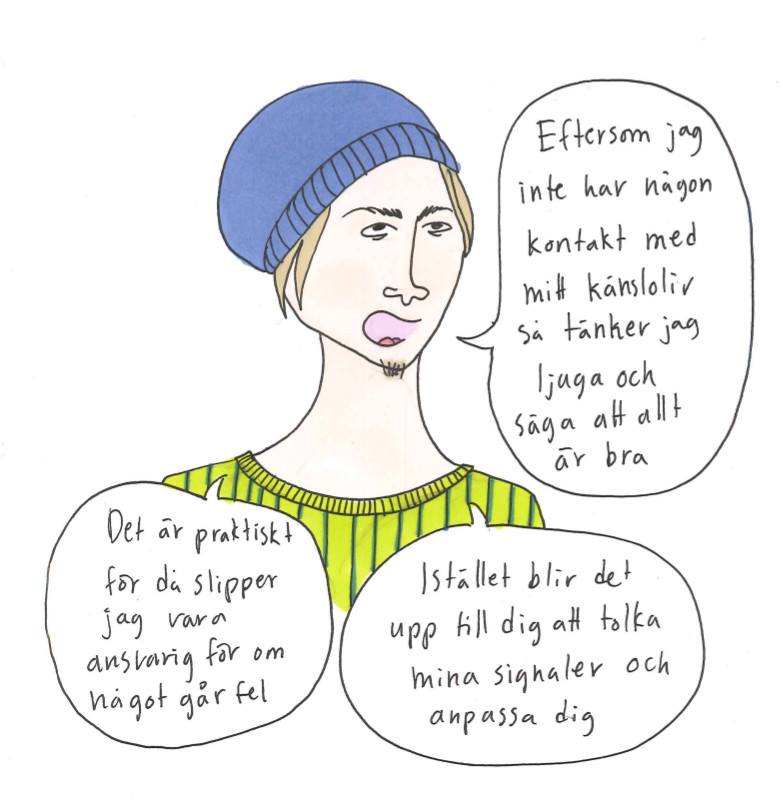 Eftersom jag
inte har någon
kontakt med
mitt känsloliv
så tänker jag
ljuga och
säga att allt
är bra
Det är praktiskt
för då slipper
jag vara
ansvarig för om
något går fel
Istället blir det
upp till dig att tolka
mina signaler och
anpassa dig